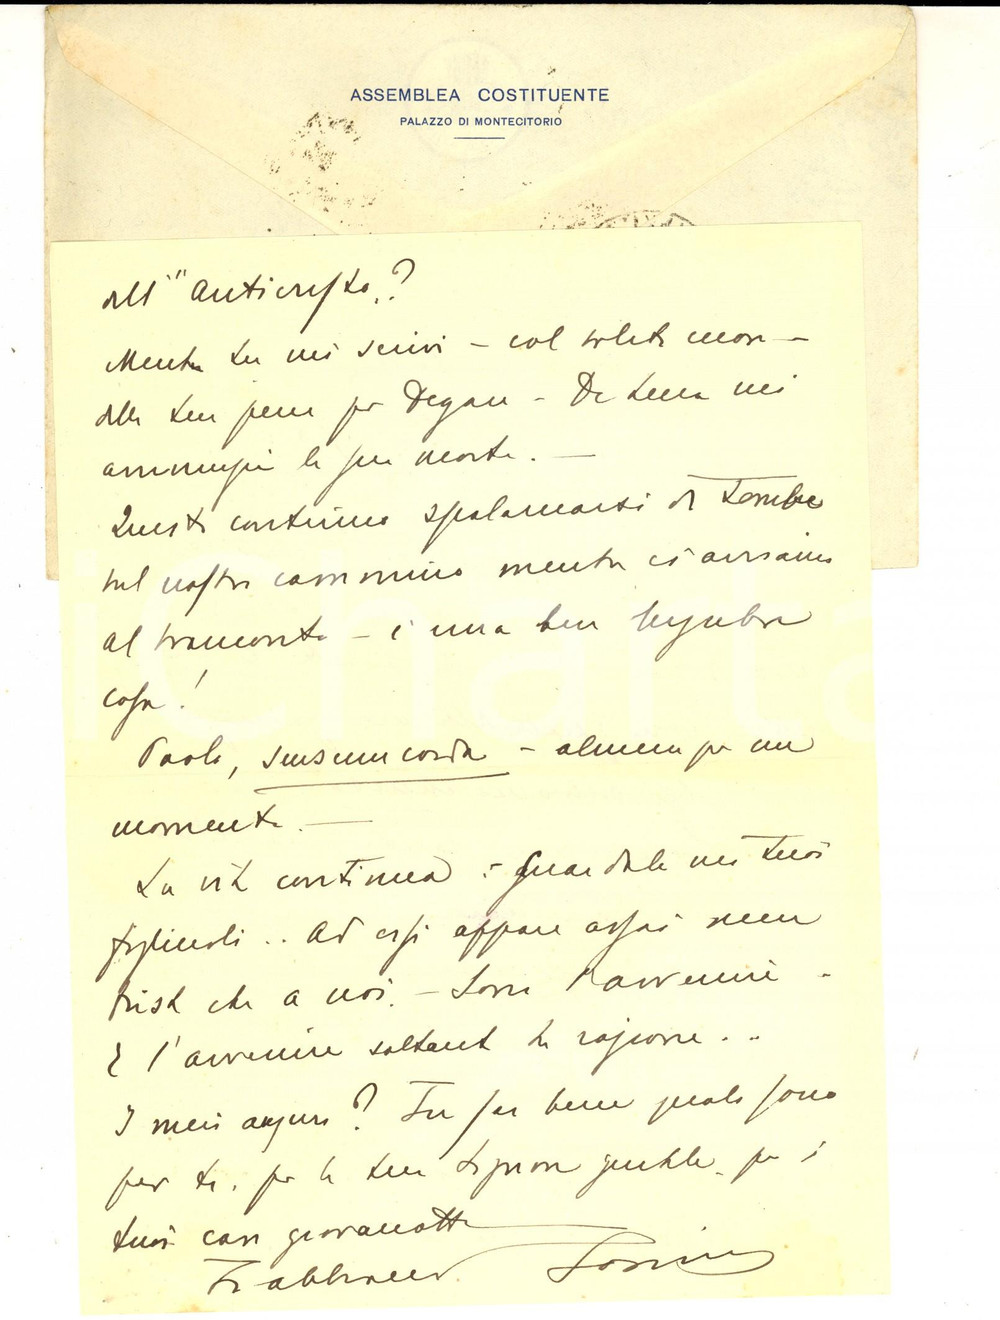 ASSEMBLEA COSTITUENTE
PALAZZO DI MONTECITORIO
dell'"Anticristo"?
Mentre tu mi scrivi – col solito
della tua pena per Degan – De Luca mi
annunzia la sua morte. —
Questo continuo spalancarsi di tombe
sul nostro cammino mentre ci avviamo
al tramonto – è una ben lugubre
cosa!
Paolo, sursum corda – almeno per un
momento. —
La vita continua: guardala nei tuoi
figliuoli.. Ad essi appare assai meno
triste che a noi. – Sono l'avvenire –
E l'avvenire soltanto ha ragione...
I miei auguri? Tu sai bene quali sono
per te, per la tua Signora gentile, per i
tuoi cari giovanotti
Ti abbraccio